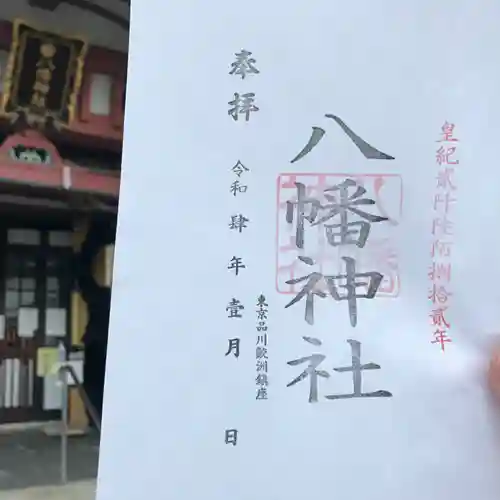 皇紀貳阡陸陌捌拾貳年
八幡神社
東京品川歐洲鎮座
奉拝
令和肆年壹月 日
八幡神社